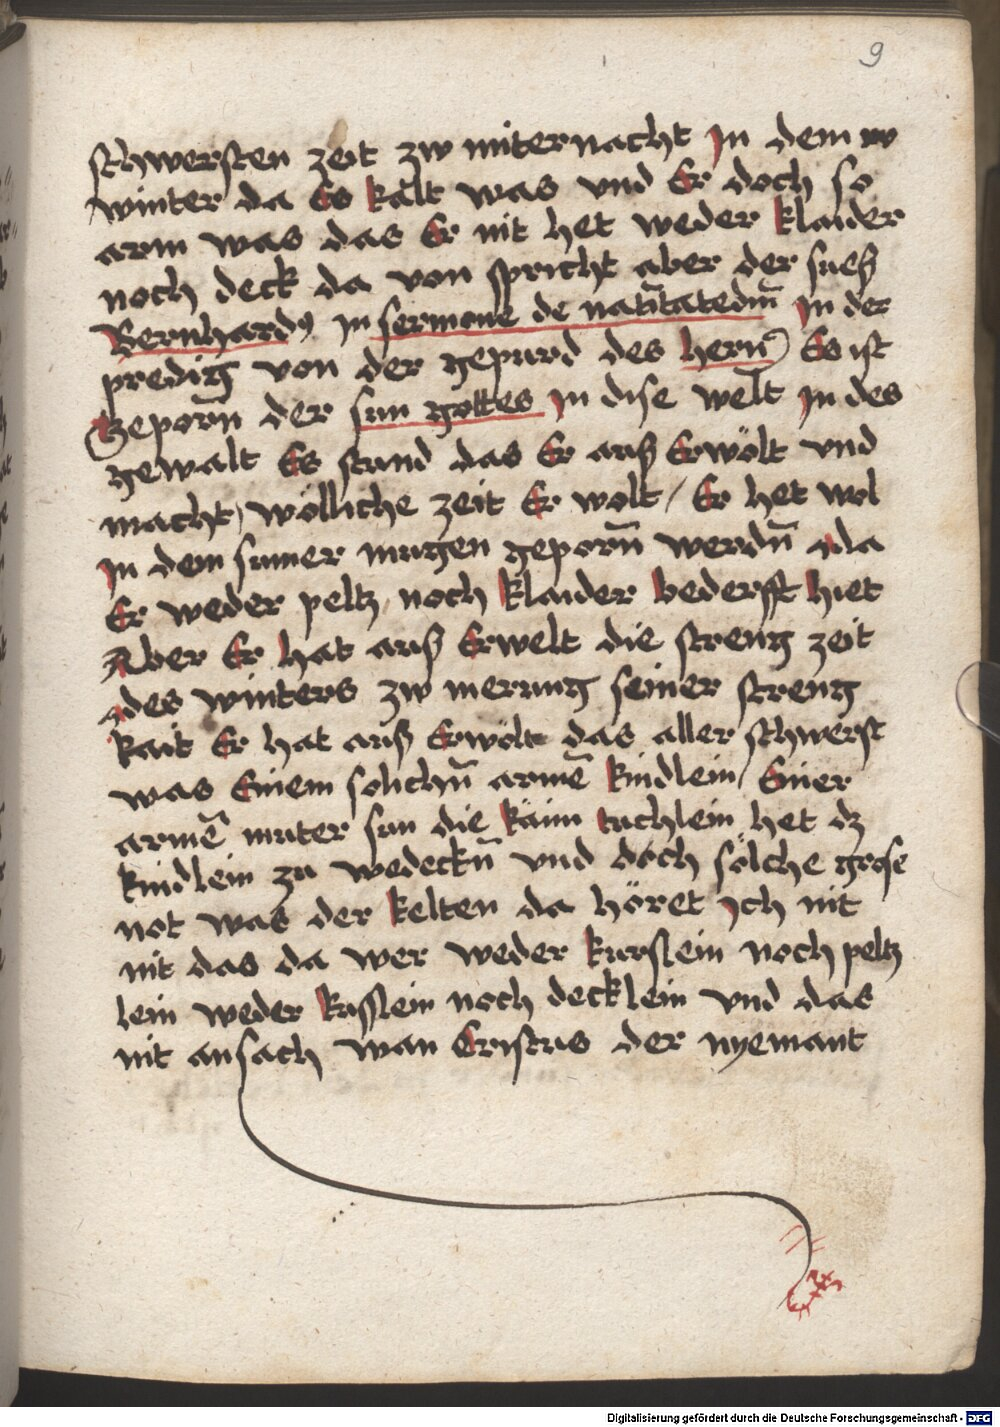 9
schwersten zeit zw miternacht Jn dem w
winter da Es kalt was vnd Er doch so
arm was das Er nit het weder klaider
noch deck da von spricht aber der sueß
Bernhardꝰ Jn sermone de natītatedm̄ Jn der
predig von der gepurd des hern̄) Es ist
Geporn̄ der sun gottes Jn dise welt Jn des
gewalt Es stund das Er auß Erwölt vnd
macht, wölliche zeit Er wolt / Er het wol
Jn dem sumer mugen geporn̄ werdn̄ da
Er weder peltz noch klaider bederfft hiet
Aber Er hat auß Erwelt die streng zeit
des winters zw merung seiner streng
kait Er hat auß Erwölt das aller schwerst
was Einem solichn̄ armē kindlein / Einer
armē muter sun die käim tuchlein het dz
kindlein zu wedeckn̄ vnd doch sölche grose
not was der kelten da höret Jch nit
nit das da wer weder kurslein noch peltz
lein weder kusslein noch decklein vnd das
nit ansach wan Cristus der nyemant
Digitalisierung gefördert durch die Deutsche Forschungsgemeinschaft - DFG